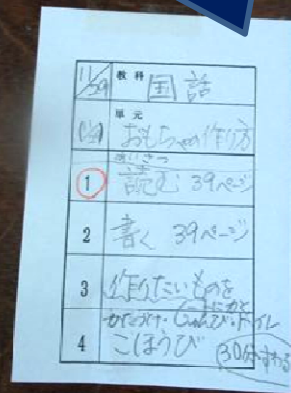 11/29 教科 国語
単元
おもちゃの作り方
あいさつ
1 読む 39ページ
2 書く 39ページ
3 作りたいものを
かたづけ・じゅんび・トイレ
4 ごほうび 30分